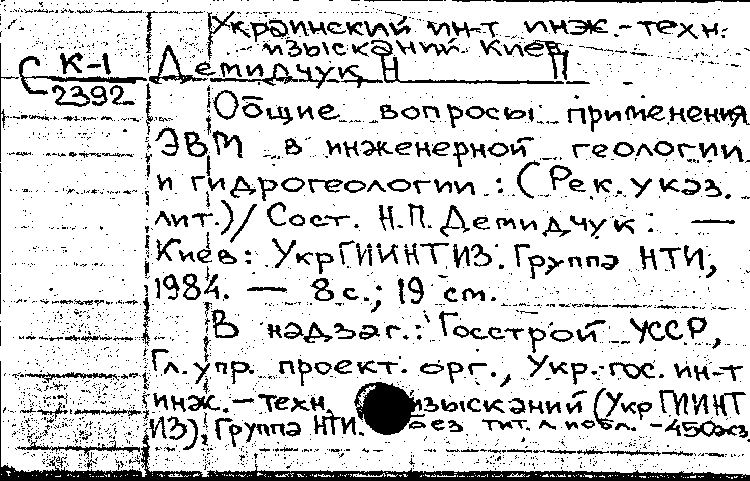 Украинский ин-т инж.-техн.
изысканий. Киев.
С К-1 Демидчук, Н П
2392
Общие вопросы применения
ЭВМ в инженерной геологии
и гидрогеологии : (Рек. указ.
лит.) / Сост. Н.П. Демидчук. —
Киев: УкрГИИНТИЗ. Группа НТИ,
1984. — 8 с.; 19 см.
В надзаг.: Госстрой УССР,
Гл. упр. проект. орг., Укр. гос. ин-т
инж.-техн. изысканий (УкрГИИНТ
ИЗ), Группа НТИ. Без тит. л. и обл. - 450экз